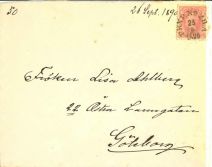 50
26 Sept. 1890
Fröken Lisa Ahlberg
22 Östra Larmgatan
Göteborg